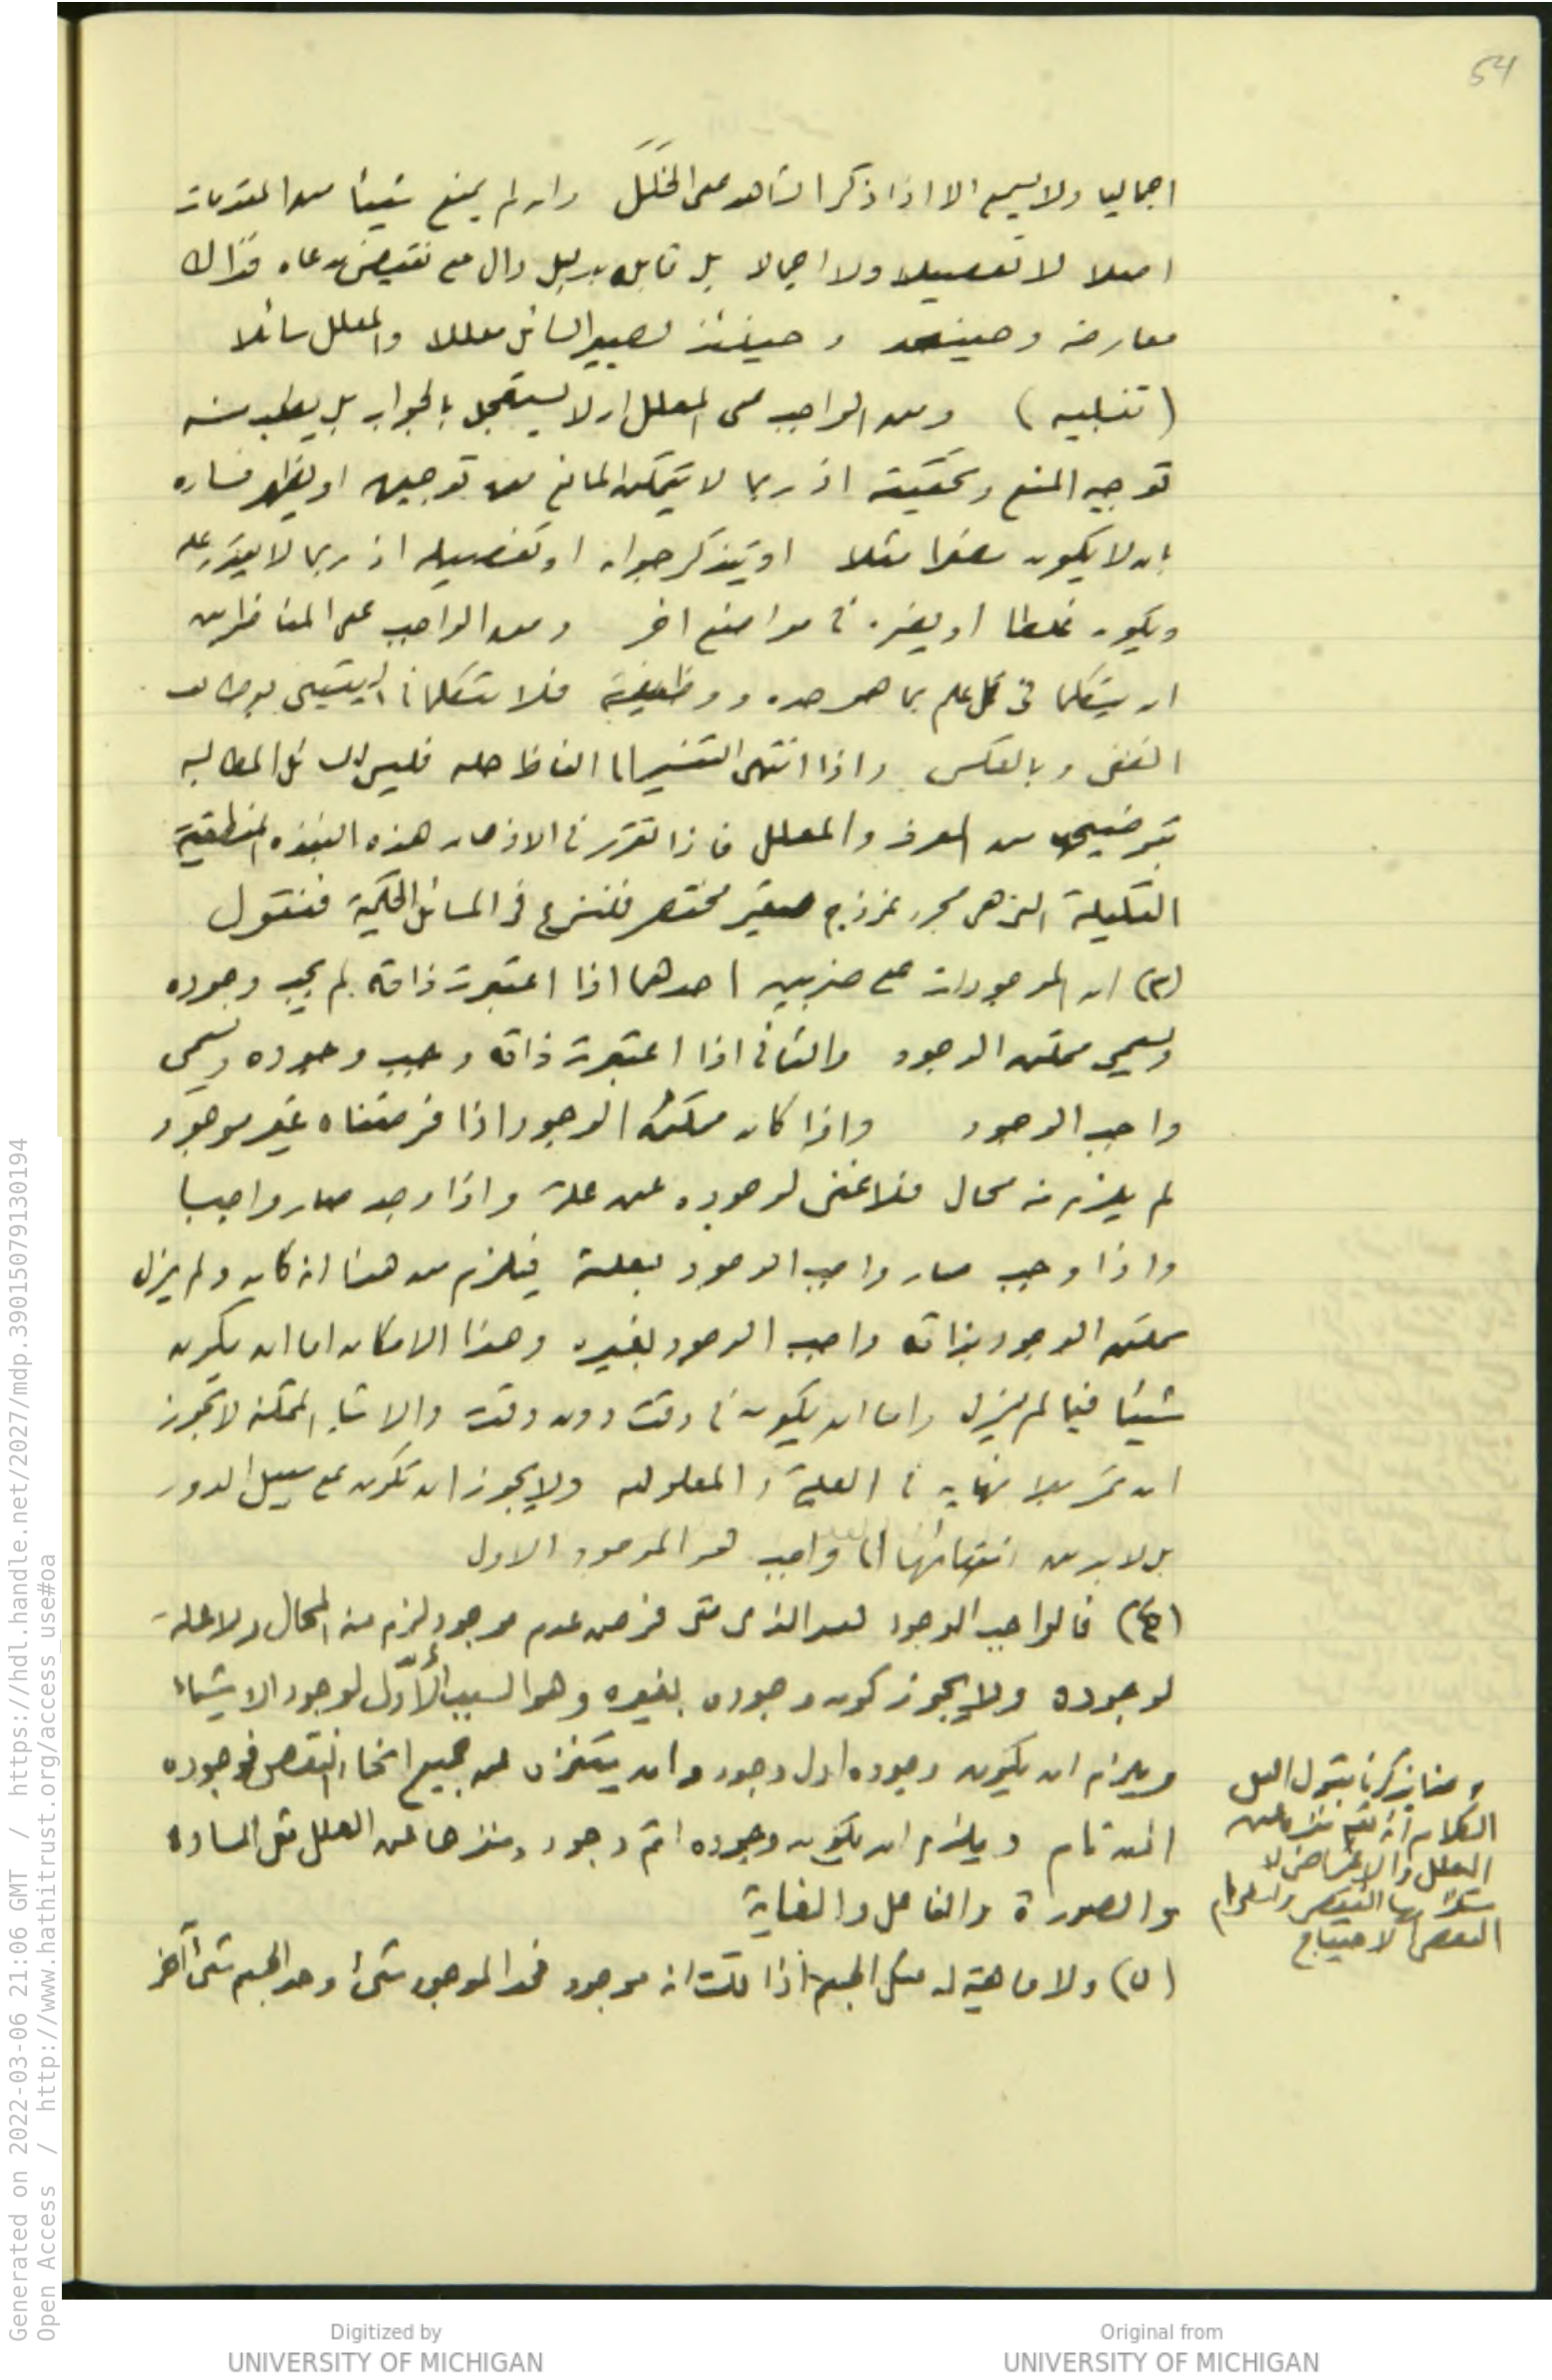 54
اجماليا ولا يسمع الا اذا ذكر الشاهد على الخلل وان لم يمنع شيئا من المقدمات
اصلا لا تفصيلا ولا اجمالا بل قابله بدليل دال على نقيض مدعاه فذاك
معارضة وحينئذ وحينئذ يصير السائل معللا والمعلل سائلا
(تنبيه) ومن الواجب على المعلل ان لا يستعجل بالجواب بل يطلب منه
توجيه المنع وتحقيقه اذ ربما لا يتمكن المانع من توجيهه او يظهر فساده
بان لا يكون مضرا مثلا او يتذكر جوابه او تفصيله اذ ربما لا يقدر عليه
ويكون غلطا او يضره في مواضع اخر ومن الواجب على المتناظرين
ان يتكلما في كل علم بما هو حده ووظيفته فلا يتكلما في اليقيني بوظائف
الظني وبالعكس واذا انتهى التفسير الى الفاظ جلية فليس للسائل المطالبة
بتوضيحها من المعرف والمعلل فاذا تقرر في الاذهان هذه النبذه المنطقية
القليلة التي هي مجرد نموذج صغير مختصر فلنشرع في المسائل الحكمية فنقول
(٣) ان الموجودات على ضربين احدهما اذا اعتبرت ذاته لم يجب وجوده
ويسمى ممكن الوجود والثاني اذا اعتبرت ذاته وجب وجوده ويسمى
واجب الوجود واذا كان ممكن الوجود اذا فرضناه غير موجود
لم يلزم منه محال فلا غنى لوجوده عن علة واذا وجد صار واجبا
واذا وجب صار واجب الوجود بعلة فيلزم من هذا انه كان ولم يزل
ممكن الوجود بذاته واجب الوجود بغيره وهذا الامكان اما ان يكون
شيئا فيما لم يزل واما ان يكون في وقت دون وقت والاشياء الممكنة لا يجوز
ان تمر بلا نهاية في العلية والمعلولية ولا يجوز ان تكون على سبيل الدور
بل لا بد من انتهائها الى واجب هو الموجود الاول
(٤) فالواجب الوجود هو الذي متى فرض عدم موجود لزم منه المحال ولا علة
لوجوده ولا يجوز كون وجوده بغيره وهو السبب الأوّل لوجود الاشياء
ويلزم ان يكون وجوده اول وجود وان يتنزه عن جميع انحاء النقص فوجوده
اذن تام ويلزم ان يكون وجوده اتم وجود ومنزها عن العلل مثل المادة
والصورة والفاعل والغاية
(٥) ولا ماهية له مثل الجسم اذا قلت انه موجود فحد الموجود شئ وحد الجسم شئ آخر
العلل والاغراض لا